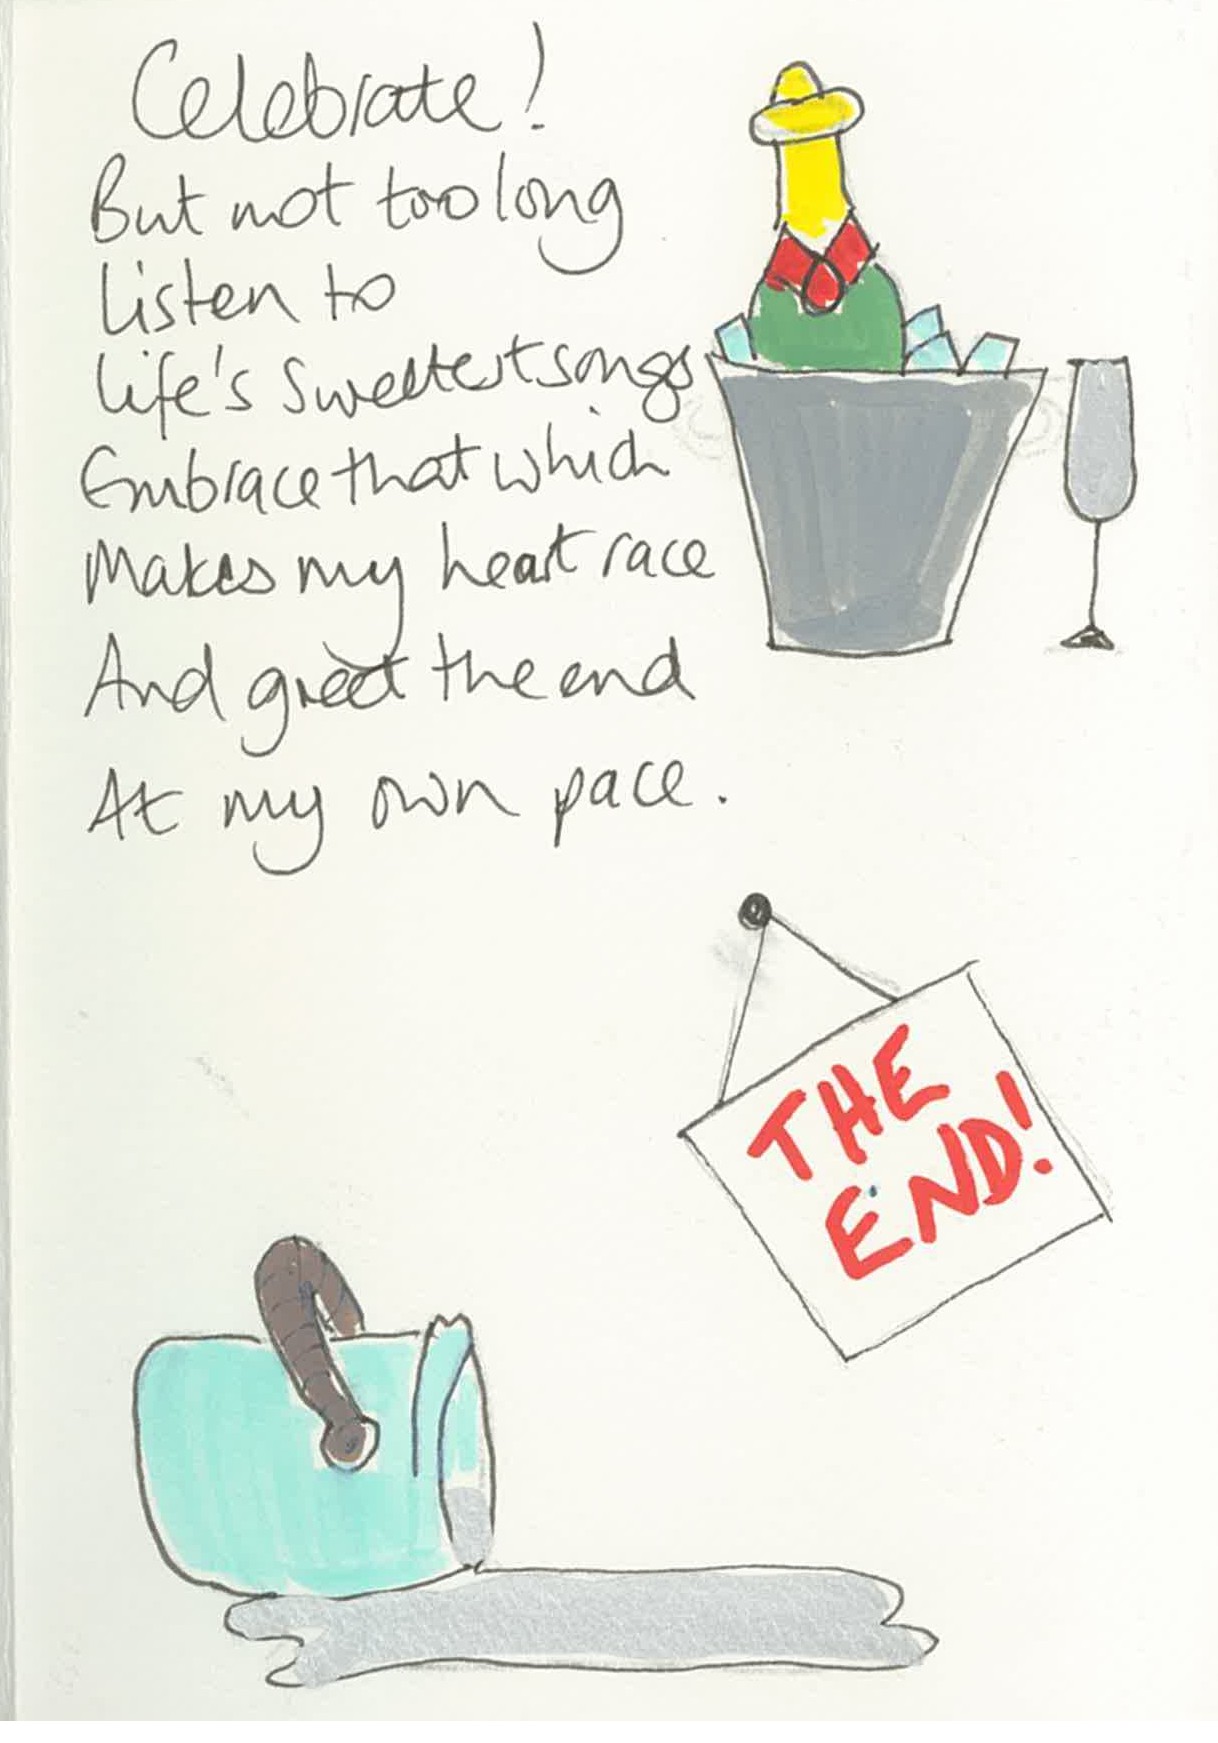 Celebrate!
But not too long
Listen to
life's sweetest songs
Embrace that which
Makes my heart race
And greet the end
At my own pace.
THE
END!